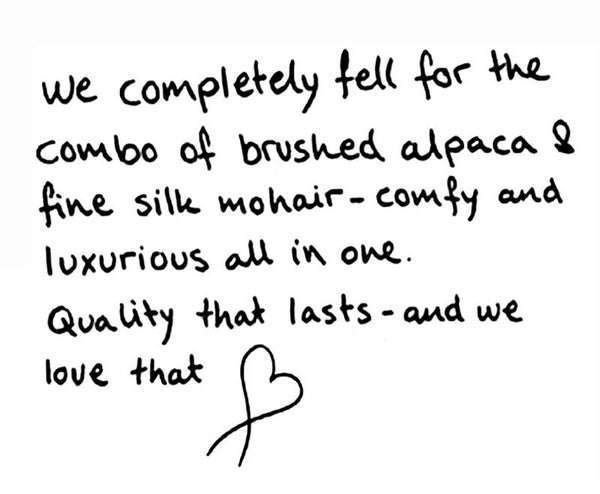 we completely fell for the
combo of brushed alpaca &
fine silk mohair - comfy and
luxurious all in one.
Quality that lasts - and we
love that